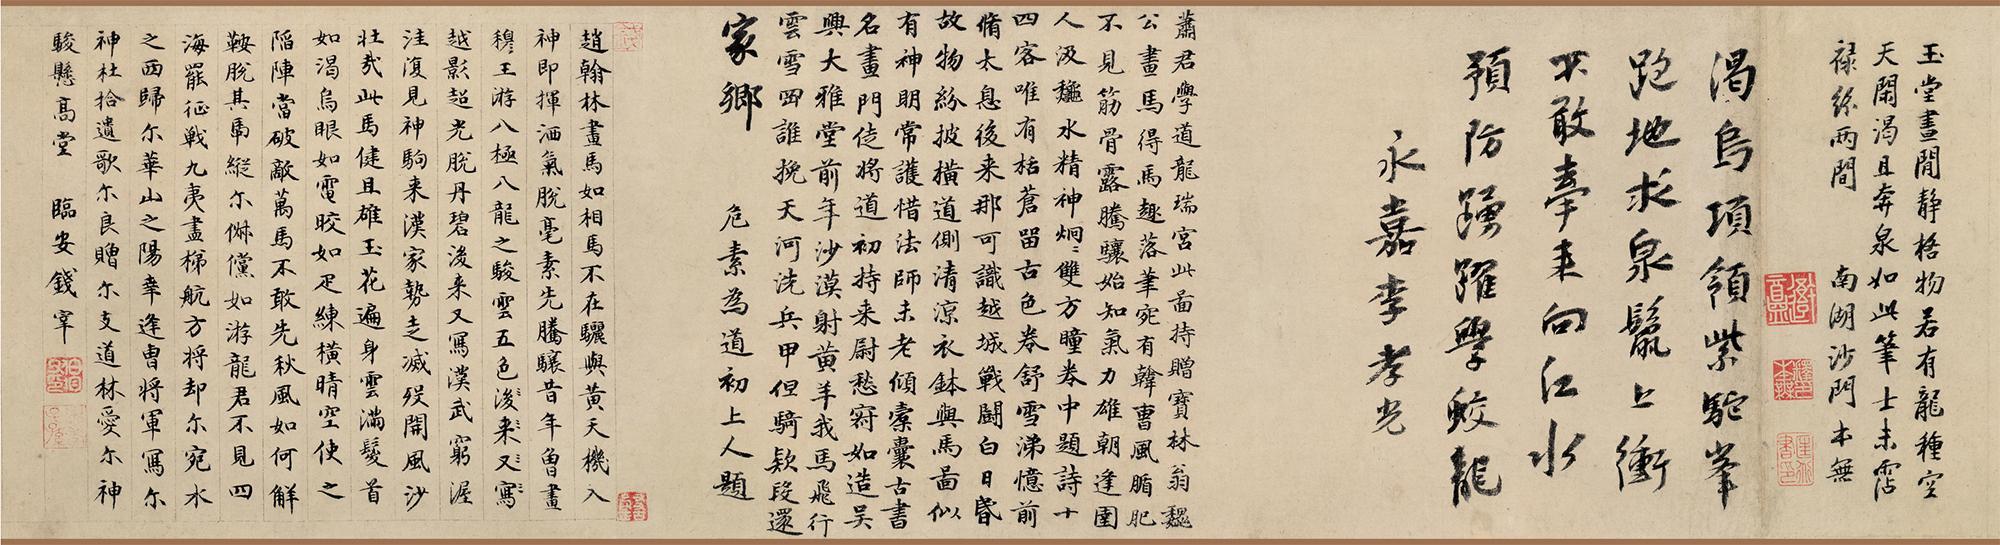 玉堂晝閒靜格物若有龍種空
天閑渴且奔泉如此筆士未霑
祿絲兩間 南湖沙門本無
渴烏項領紫駝峯
跑地求泉鬣上衝
不敢牽來向江水
預防踴躍學蛟龍
永嘉李孝光
蕭君學道龍瑞宮此啚持贈寶林翁魏
公畫馬得馬趣落筆宛有韓曹風腯肥
不見筋骨露騰驤始知氣力雄朝逢圉
人汲魏水精神炯炯雙方瞳券中題詩十
四客唯有栝蒼留古色券舒雪涕憶前
脩太息後来那可識越城戰鬪白日昏
故物紛披橫道側清涼衣鉢與馬啚似
有神明常護惜法師未老傾橐囊古書
名畫門徒將道初持来尉愁寂如造吳
興大雅堂前年沙漠射黃羊我馬飛行
雲雪四誰挽天河洗兵甲但騎欵段還
家鄉 危素為道初上人題
趙翰林畫馬如相馬不在驪與黃天機入
神即揮洒氣脫毫素先騰驤昔年魯畫
穆王游八極八龍之駿雲五色後来又寫
越影超光脫丹碧後来又寫漢武窮渥
洼復見神駒来漢家勢走滅沒開風沙
壯哉此馬健且雄玉花遍身雲滿鬉首
如渴烏眼如電晈如疋練橫晴空使之
陷陣當破敵萬馬不敢先秋風如何解
鞍脫其馽縱尔俶儻如游龍君不見四
海罷征戰九夷盡梯航方将却尔宛水
之西歸尔華山之陽幸逢曺将軍寫尔
神杜拾遺歌尔良贈尔支道林愛尔神
駿懸高堂 臨安錢宰